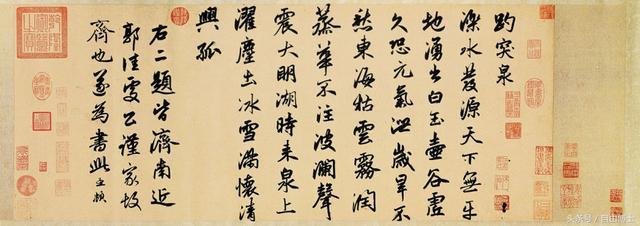 趵突泉
濼水發源天下無平
地湧出白玉壺谷虛
久恐元氣泄歲旱不
愁東海枯雲霧潤
蒸華不注波瀾聲
震大明湖時來泉上
濯塵土冰雪滿懷清
興孤
右二題皆濟南近
郭佳處公謹家故
齊也遂為書此孟頫
头条号 / 自由博士